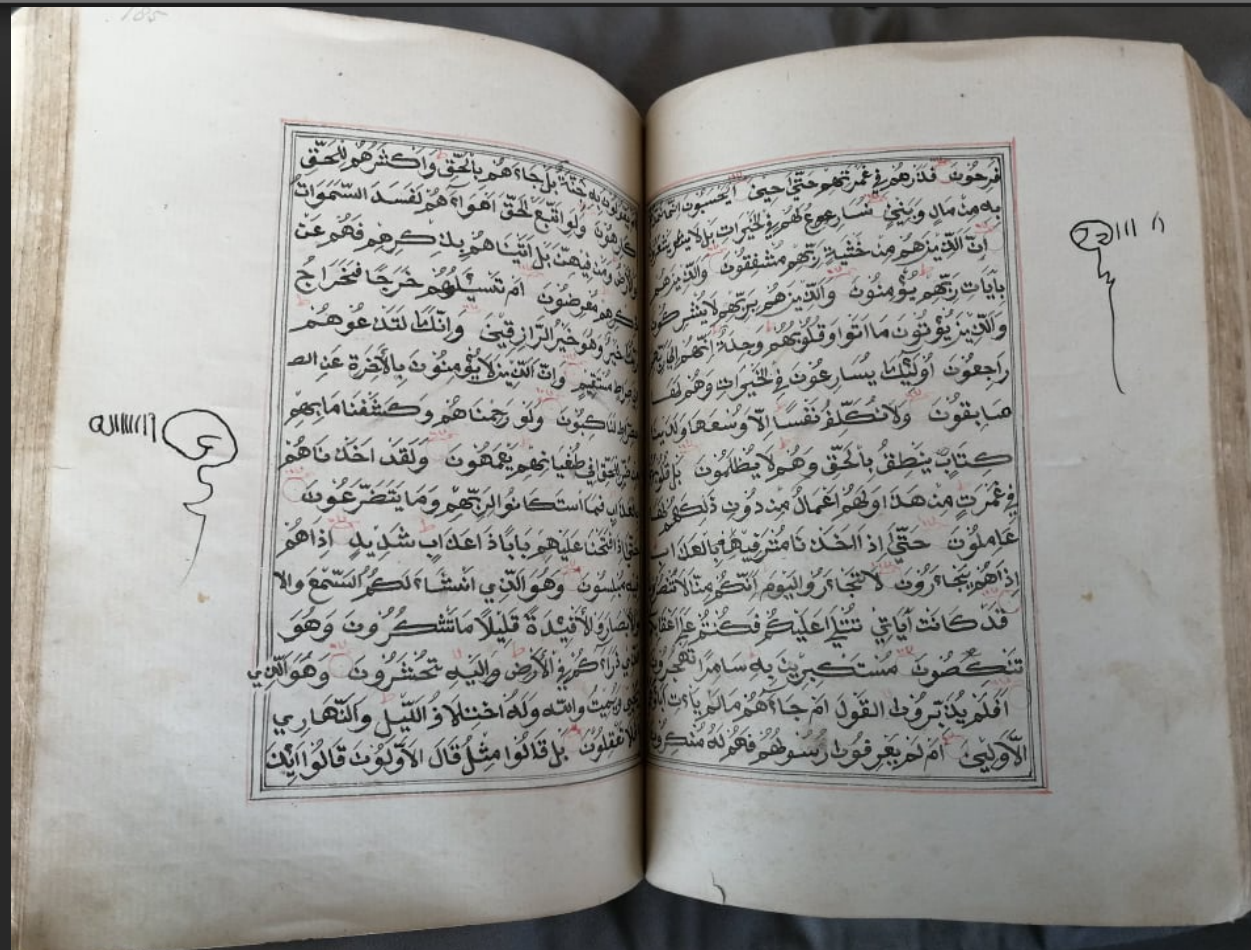 فَرِحُونَ فَذَرْهُمْ فِي غَمْرَتِهِمْ حَتَّىٰ حِينٍ أَيَحْسَبُونَ
بِهِ مِنْ مَالٍ وَبَنِينَ لَهُمْ فِي الْخَيْرَاتِ بَلْ لَا
اِنَّ الَّذِينَ هُمْ مِنْ خَشْيَةِ رَبِّهِمْ مُشْفِقُونَ وَالَّذِينَ هُمْ
بِآيَاتِ رَبِّهِمْ يُؤْمِنُونَ وَالَّذِينَ هُمْ بِرَبِّهِمْ لَا يُشْرِكُونَ
وَالَّذِينَ يُؤْتُونَ مَا اٰتَوا وَقُلُوبُهُمْ وَجِلَةٌ اَنَّهُمْ
رَاجِعُونَ اُولَٰئِكَ يُسَارِعُونَ فِي الْخَيْرَاتِ وَهُمْ لَهَـ
صَابِقُونَ وَلَا نُكَلِّفُ نَفْسًا اِلَّا وُسْعَهَا وَلَدَيْنَا
كِتَابٌ يَنْطِقُ بِالْحَقِّ وَهُمْ لَا يُظْلَمُونَ بَلْ قُلُوبُهُمْ
فِي غَمْرَتٍ مِنْ هَذَا وَلَهُمْ اَعْمَالٌ مِنْ دُونِ ذَلِكَ هُمْ لَهَا
عَامِلُونَ حَتَّى اِذَا اَخَذْنَا مُتْرَفِيهِمْ بِالْعَذَابِ
اِذَاهُمْ يَجْاَرُونَ لَا تَجْاَرُوا الْيَوْمَ اِنَّكُمْ مِنَّا لَا تُنْصَرُونَ
قَدْ كَانَتْ آيَاتِي تُتْلَى عَلَيْكُمْ فَكُنْتُمْ عَلَى اَعْقَابِكُمْ
تَنْكُصُونَ مُسْتَكْبِرِينَ بِهِ سَامِرًا تَهْجُرُونَ
اَفَلَمْ يَدَّبَّرُوا الْقَوْلَ اَمْ جَاءَهُمْ مَالَمْ يَاْتِ
الْاَوَّلِينَ اَمْ لَمْ يَعْرِفُوا رَسُولَهُمْ فَهُمْ لَهُ مُنْكِرُونَ
يَقُولُونَ بِهِ جِنَّةٌ بَلْ جَاءَهُمْ بِالْحَقِّ وَاَكْثَرُهُمْ لِلْحَقِّ
كَارِهُونَ وَلَوِ اتَّبَعَ الْحَقُّ اَهْوَاءَهُمْ لَفَسَدَ السَّمَوَاتُ
وَالْاَرْضُ وَمَنْ فِيهِنَّ بَلْ اَتَيْنَاهُمْ بِذِكْرِهِمْ فَهُمْ عَنْ
ذِكْرِهِمْ مُعْرِضُونَ اَمْ تَسْـَٔلُهُمْ خَرْجًا فَخَرَاجُ
رَبِّكَ خَيْرٌ وَهُوَ خَيْرُ الرَّازِقِينَ وَاِنَّكَ لَتَدْعُوهُمْ
اِلَى صِرَاطٍ مُسْتَقِيمٍ وَاِنَّ الَّذِينَ لَا يُؤْمِنُونَ بِالْآخِرَةِ عَنِ الص
صِرَاطِ لَنَاكِبُونَ وَلَوْ رَحِمْنَاهُمْ وَكَشَفْنَا مَا بِهِمْ
مِنْ ضُرٍّ فِي طُغْيَانِهِمْ يَعْمَهُونَ وَلَقَدْ اَخَذْنَاهُمْ
بِالْعَذَابِ فَمَا اسْتَكَانُوا لِرَبِّهِمْ وَمَا يَتَضَرَّعُونَ
حَتَّى اِذَا فَتَحْنَا عَلَيْهِمْ بَابًا ذَا عَذَابٍ شَدِيدٍ اِذَاهُمْ
فِيهِ مُبْلِسُونَ وَهُوَ الَّذِي اَنْشَاَ لَكُمُ السَّمْعَ وَالا
وَالْاَبْصَارَ وَالْاَفْـِٔدَةَ قَلِيلًا مَا تَشْكُرُونَ وَهُوَ
الَّذِي ذَرَاَكُمْ فِي الْاَرْضِ وَاِلَيْهِ تُحْشَرُونَ وَهُوَ الَّذِي
يُحْيِي وَيُمِيتُ وَلَهُ اخْتِلَافُ اللَّيْلِ وَالنَّهَارِ
اَفَلَا تَعْقِلُونَ بَلْ قَالُوا مِثْلَ قَالَ الْاَوَّلُونَ قَالُوا